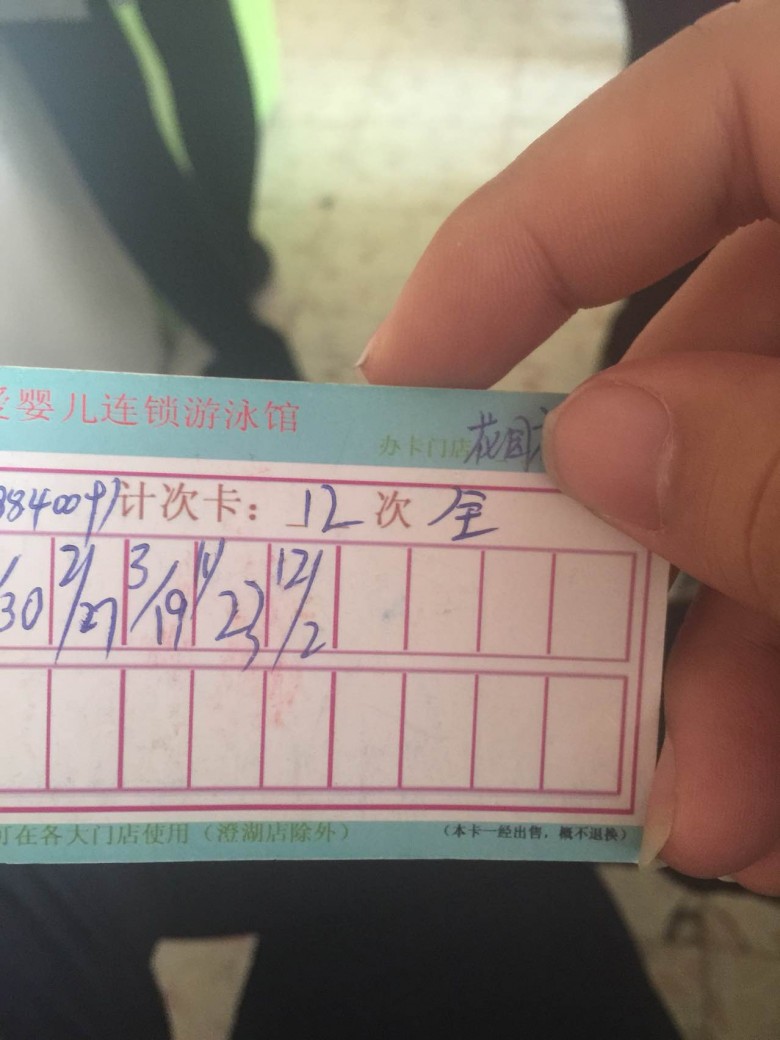 爱婴儿连锁游泳馆
办卡门店 花园
3840091 计次卡：12 次 全
/30 2/27 3/19 11/23 12/2
可在各大门店使用（澄湖店除外） （本卡一经出售，概不退换）